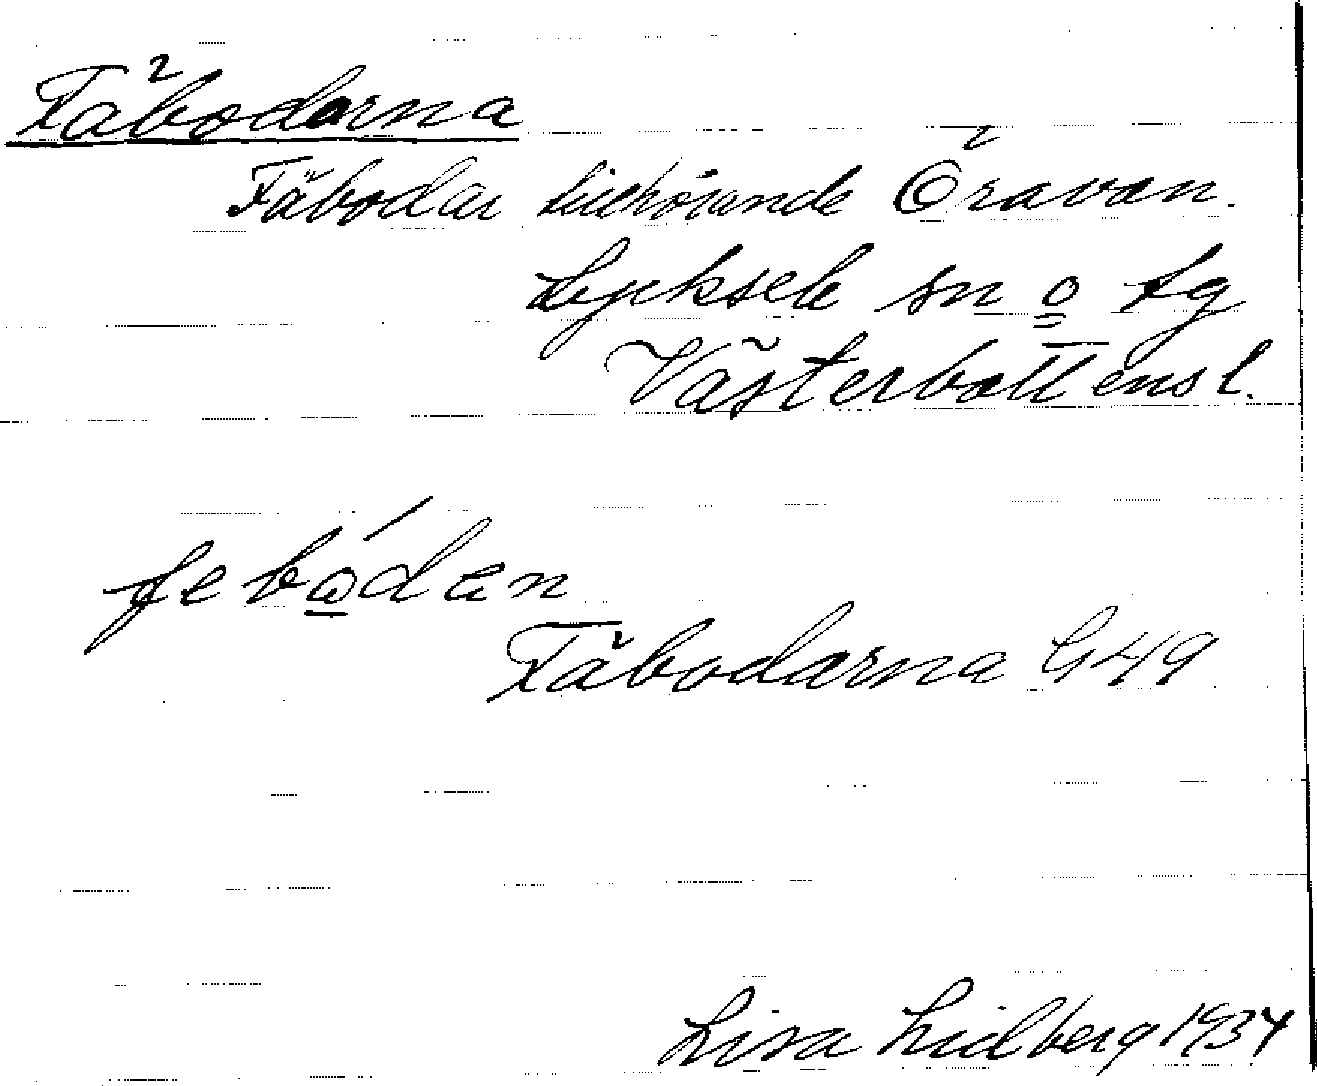 Fäbodarna
Fäbodar tillhörande Öravan.
Lycksele sn o lg
Västerbottensl.
febo̱´dan
Fäbodarna G 49
Lisa Lidberg 1934